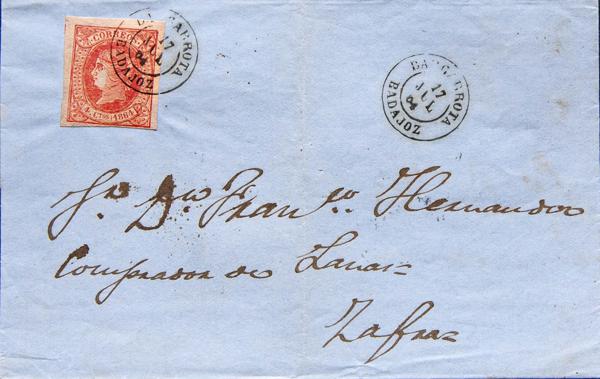 CORREOS
4 Ctos 1864
BARCARROTA
17
JUL
64
BADAJOZ
BARCARROTA
17
JUL
64
BADAJOZ
Sr. Dn Franco. Hernandez
Comprador de Lanas
Zafra